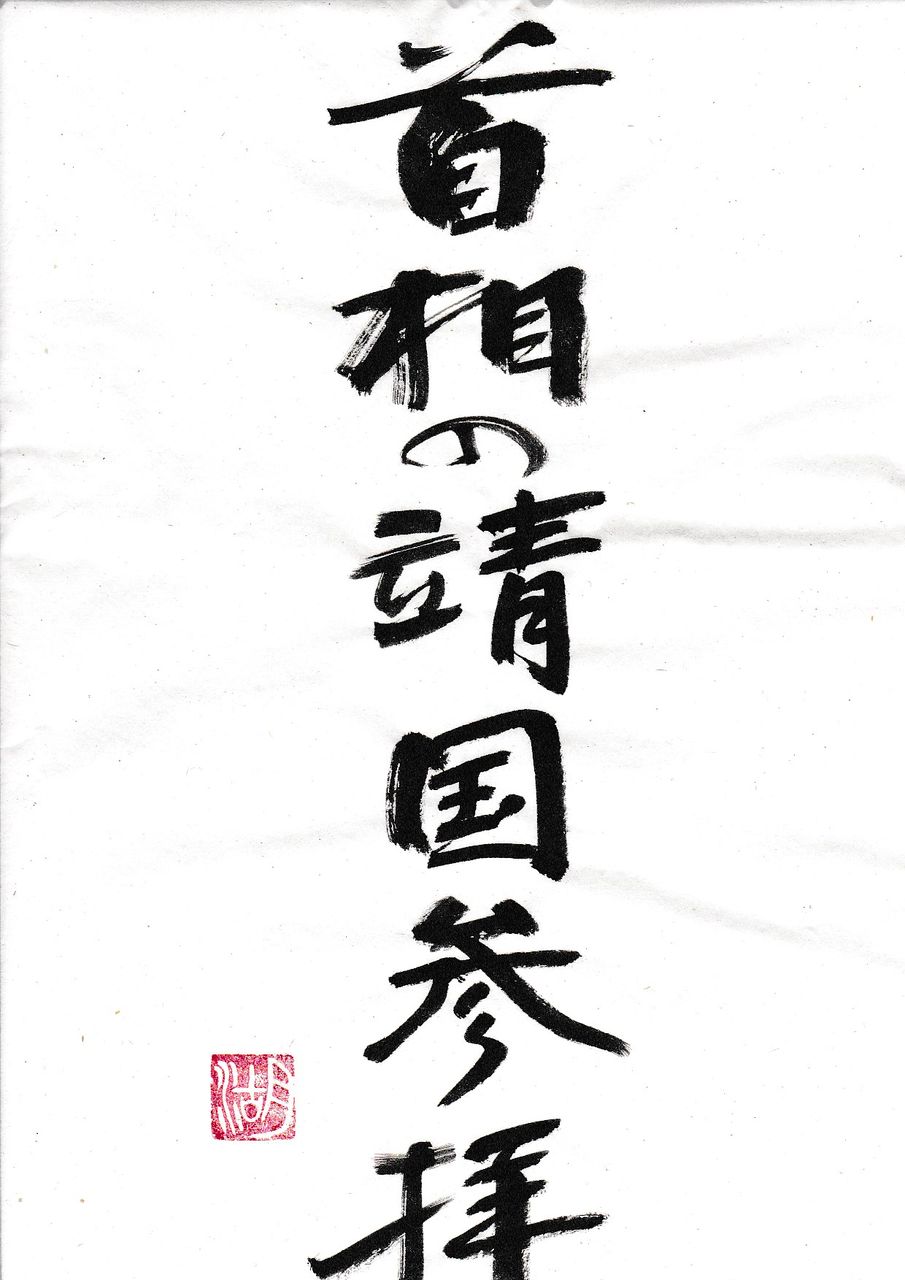 首相の靖国参拝
湖